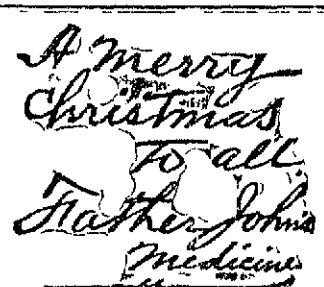 A Merry
Christmas
To all
Father John's
Medicine